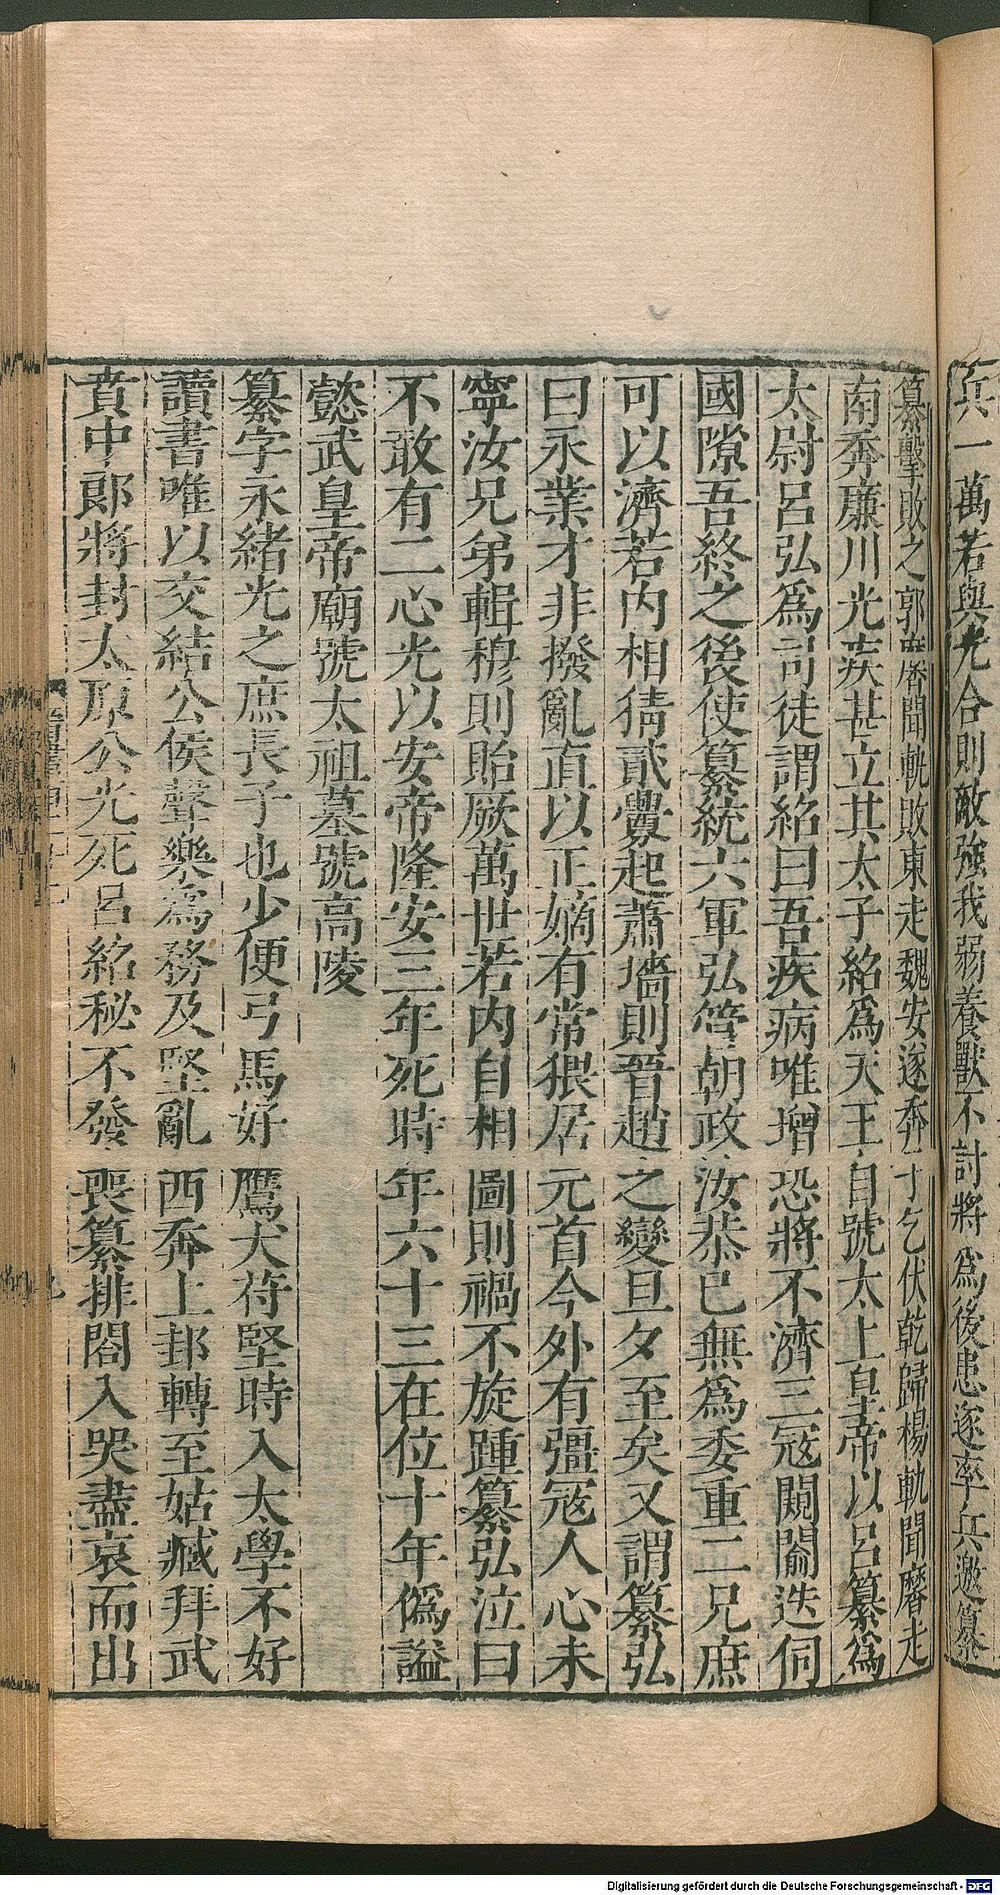 兵一萬若與光合則敵強我弱養獸不討將爲後患遂率兵邀纂
纂擊敗之郭黁聞軌敗東走魏安遂奔于乞伏乾歸楊軌聞黁走
南奔廉川光疾甚立其太子紹爲天王自號太上皇帝以呂纂爲
太尉呂弘爲司徒謂紹曰吾疾病唯增恐將不濟三寇闚𨵦迭伺
國隙吾終之後使纂統六軍弘管朝政汝恭已無爲委重二兄庶
可以濟若内相猜貳釁起蕭墻則晉趙之變旦夕至矣又謂纂弘
曰永業才非撥亂直以正嫡有常猥居元首今外有彊寇人心未
寧汝兄弟輯穆則貽厥萬世若内自相圖則禍不旋踵纂弘泣曰
不敢有二心光以安帝隆安三年死時年六十三在位十年僞謚
懿武皇帝廟號太祖墓號高陵
纂字永緒光之庶長子也少便弓馬好鷹犬苻堅時入太學不好
讀書唯以交結公侯聲樂爲務及堅亂西奔上邽轉至姑臧拜武
賁中郎將封太原公光死呂紹秘不發喪纂排閤入哭盡哀而出
Digitalisierung gefördert durch die Deutsche Forschungsgemeinschaft - DFG